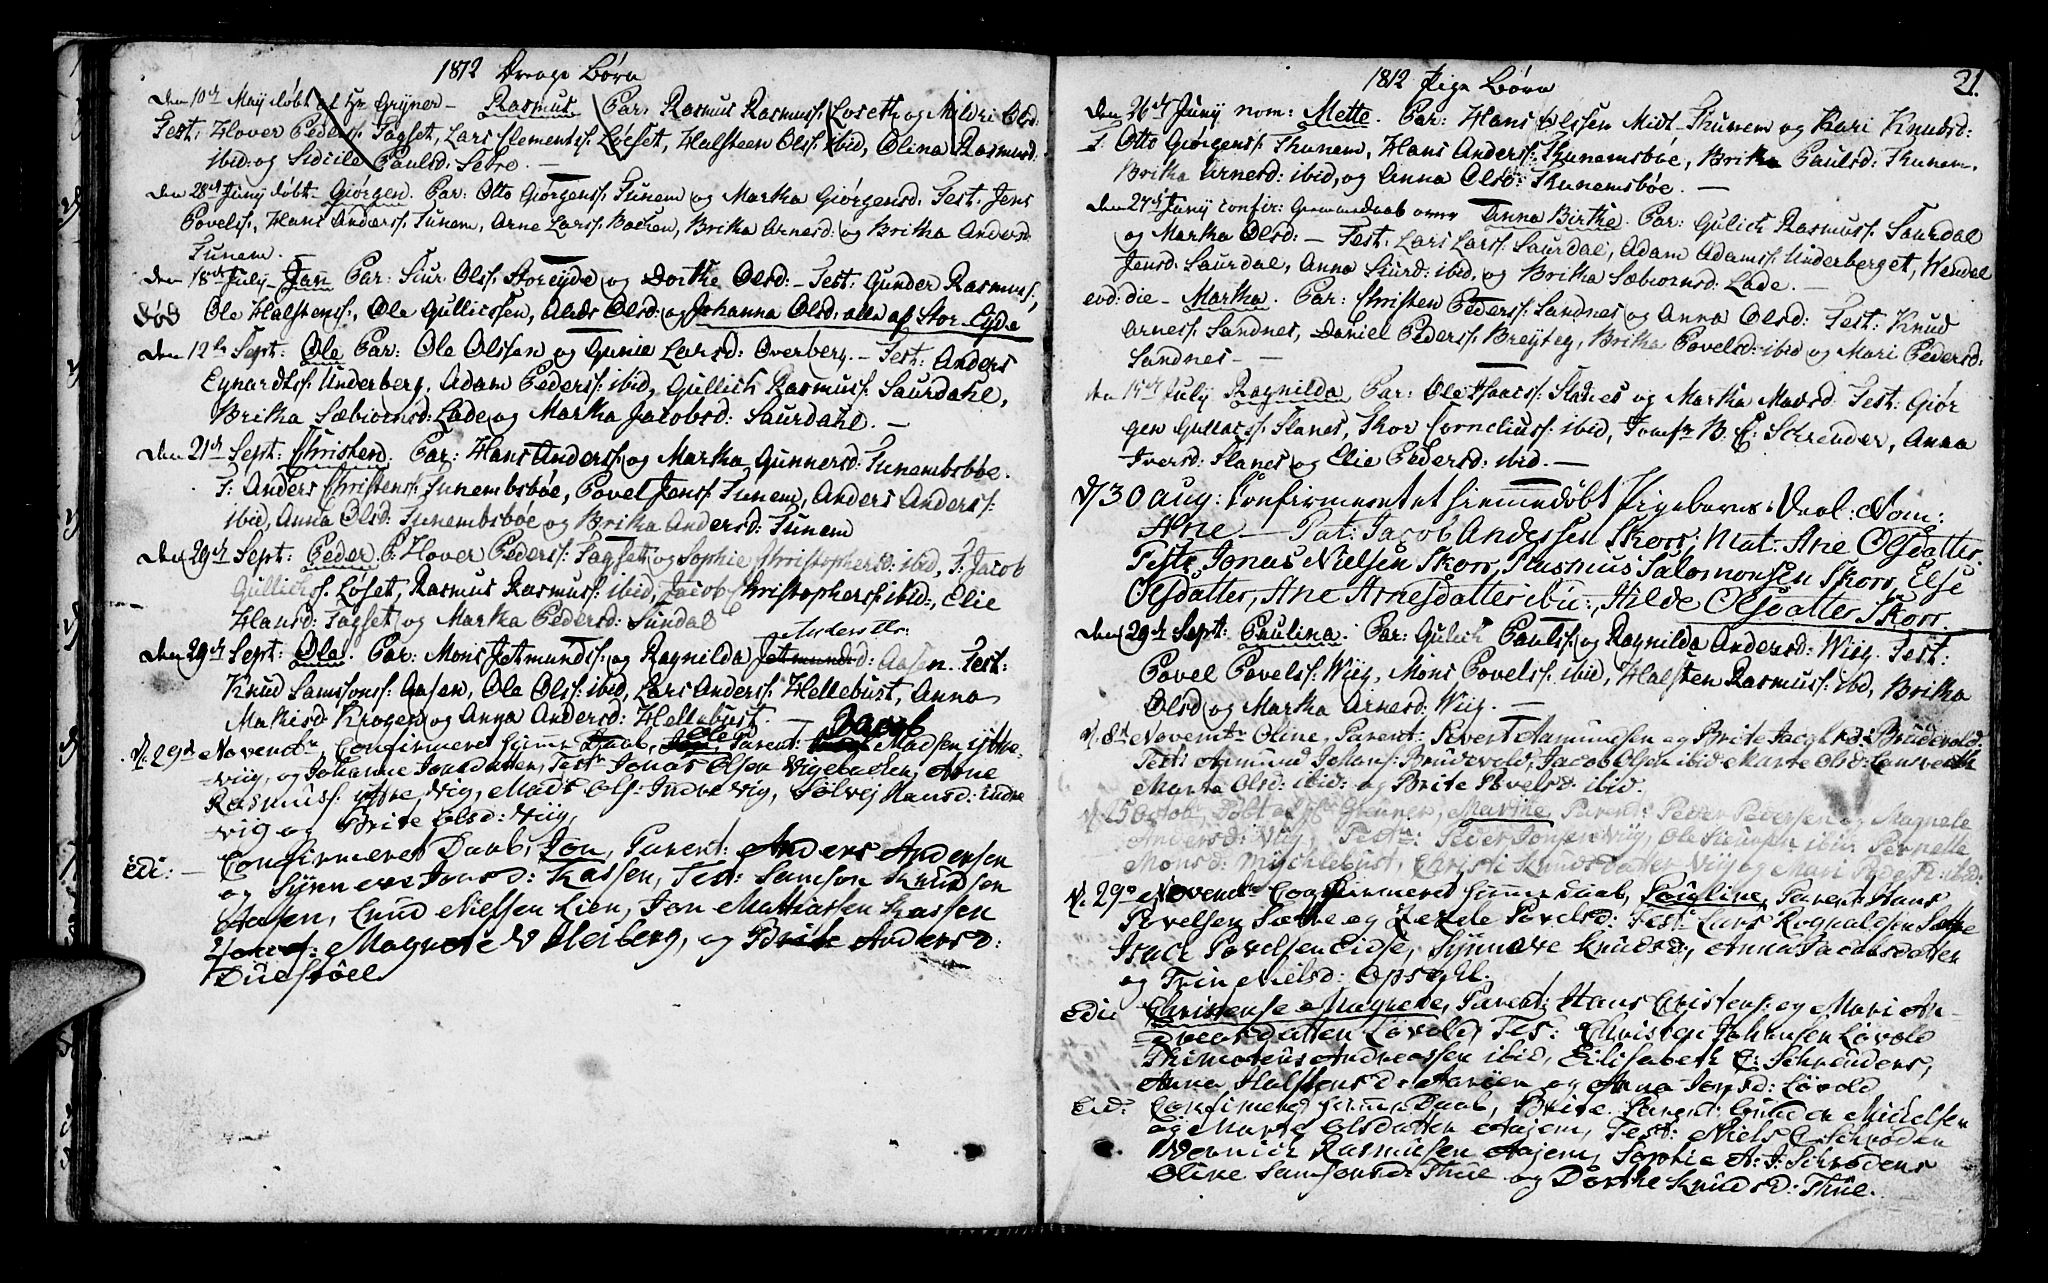 1812 Drenge Børn
Den 10de Maÿ døbt af Hr Grÿner - Rasmus Par: Rasmus Rasmuss: Losetz og Mildri Olsd:
Test: Hover Peders: Fagset, Lars Clements: Løset, Halsteen Olss: ibid, Olina Rasmusd.
ibid: og Sidcile Paulsd: Setre. —
Den 28de Junÿ døbt - Giørgen. Par: Otto Giørgenss: Tunem og Martha Giørgensd. Test: Jens
Povels:, Hans Anderss: Tunem, Arne Larss: Backen, Britha Arnesd: og Britha Andersd:
Tunem.
den 18de Julÿ - Jan Par: Siur Olss: Storeÿde og Dorthe Olsd: - Test: Gunder Rasmuss,
død Ole Halstenss:, Ole Gullicssen, Olsd: og Johanna Olsd: alle af Stor-Eÿde
den 12te Sept: Ole Par: Ole Olssen og Gunie Larsd: Overberg. - Test: Anders
Eÿnardtss: Underberg, Adam Pederss: ibid, Gullich Rasmuss: Saurdahl,
Britha Sæbiornsd: Lade og Martha Jacobsd: Saurdahl. —
den 21de Sept: Christen. Par: Hans Anderss: og Martha Gunnersd: Tunembsbøe.
T: Anders Christens: Tunembsbøe, Povel Jonss: Tunem, Anders Anderss:
ibid, Anna Olsd: Tunembsbøe og Britha Andersd: Tunem
Den 29de Sept: Peder P: Hover Pederss: Fagset og Sophie Christophersd: ibid, T: Jacob
Gullichs: Løset, Rasmus Rasmuss: ibid, Jacob Christopherss: ibid:, Elie
Hansd: Fagset og Martha Pedersd: Sundal
Andersdtr:
den 29de Sept: Ole. Par: Mons Jetmundss: og Ragnilda Jetmundsd: Aasen. Test:
Knud Samsonss: Aasen, Ole Olss: ibid, Lars Anderss: Hellebust, Anna
Mathisd: Krogen og Anna Andersd: Hellebust. — Jacob
d. 29de Novembr Confirmeret Hjemme Daab, Ole, Parent: Madsen Ÿttre-
=viig, og Johanne Jonsdatter, Testr Jonas Olsen Vigebacken, Arne
Rasmuss: ÿttre vig, Mads Ols: Indre vig, Sølvej Hansd: indre
vig og Brite Olsd: Viig,
Edi: - Confirmeret Daab, Jon, Parent: Anders Andersen
og Sÿnneve Jonsd: Kassen, Tes: Samson Knudsen
Aasen, Cnud Nielsen Lien, Jon Mathiassen Kassen
Magnete v Heiberg, og Brite Andersd:
Duestøel
1812 Pige Børn
21.
den 26de Junÿ nom: Mette. Par: Hans Olssen Midt-Thunem og Kari Knudsd:
T. Otto Giørgenss: Thunem, Hans Anderss: Thunemsbøe, Britha Paulsd: Thunem.
Britha Arnesd: ibid, og Anna Olsd: Thunemsbøe. —
den 27de Junÿ confir: over Anna Birthe. Par: Gulich Rasmuss: Saurdal
og Martha Olsd: — Test: Lars Larss: Saurdal, Adam Adamss: Underberget, Wendel
Jonsd: Saurdal, Anna Siurd: ibid, og Britha Sæbiornsd: Lade. —
eod: die - Martha. Par: Christen Pederss: Sandnes og Anna Olsd: Test: Knud
Arness: Sandnes, Daniel Pederss: Breÿteg, Britha Povelsd: ibid og Mari Pedersd:
Sandnes - —
den 15de Julÿ Ragnilda Par: Ole Isaacs: Slanes og Martha Madsd Test: Giør
gen Gullacss: Slanes, Thor Corneliuss: ibid, Jomfr B: E: Schrender, Anna
Iversd: Slanes og Elie Pedersd: ibid. —
d/30 aug: Confirmeret et hiemmedøbt Pigebarn: Nom:
Ane — Pat: Jacob Anderssen Skorr; Mat: Ane Olsdatter.
Teste Jonas Nielsen Skorr, Rasmus Salomonsen Skorr, Else
Olsdatter, Ane Arnesdatter ibid:, Hilde Olsdatter Skorr.
den 29de Sept: Paulina. Par: Gulich Paulss: og Ragnilda Andersd: Wiig. Test:
Povel Povelss: Wiig, Mons Povelss: ibid, Halsten Rasmuss: ibd, Britha
Olsd og Martha Arnesd: Wiig. —
d. 8de Novembr Oline, Parent: Severt Aamundsen og Brite Jacobsd: Brudevold:
Test: Amund Johans: Brudevold, Jacob Olsen ibid Marte Olsd:
Marte Olsd: ibid: og Brite Povelsd: ibid.
d. 25 Octob: Døbt af Hr Grüner, Marthe, Parent: Peder Pedersen og Magnele
Andersd: Viig, Testr: Peder Jonsen Viig, Ole Sieursen ibid: Pernelle
Monsd: Myschlebust, Christi Knudsdatter Viig og Mari Pedersd: ibid:
d. 29de Novembr Confirmeret Hjemme daab, Pauline, Parent: Hans
Povelsen Sætre og Zerde Povelsd: Test: Lars Rognalsen Sættre
Isack Povelsen Eidse, Synneve Knudsd:, Anna Jacobsdatter
og Trin Nielsd: Opsahl.
Edi: Christense Magnete, Parent: Hans Cristens: og Mari An-
=dreasdatter Løvold, Tes: Christen Johansen Løvold
Thimoteus Andreassen ibid, Eilisabeth C: Schreuders,
Anna Halstensd: Aarøen og Anna Jonsd: Løvold
Eid: Confirmeret hjemme Daab, Brite. Parent: Gunder Michelsen
og Marte Olsdatter Aajem, Test: Niels C Schrøder
Wernich Rasmussen Aajem, Sophie A: I: Schrøders
Oline Samsonsd: Thue og Dorthe Knudsd: Thue.